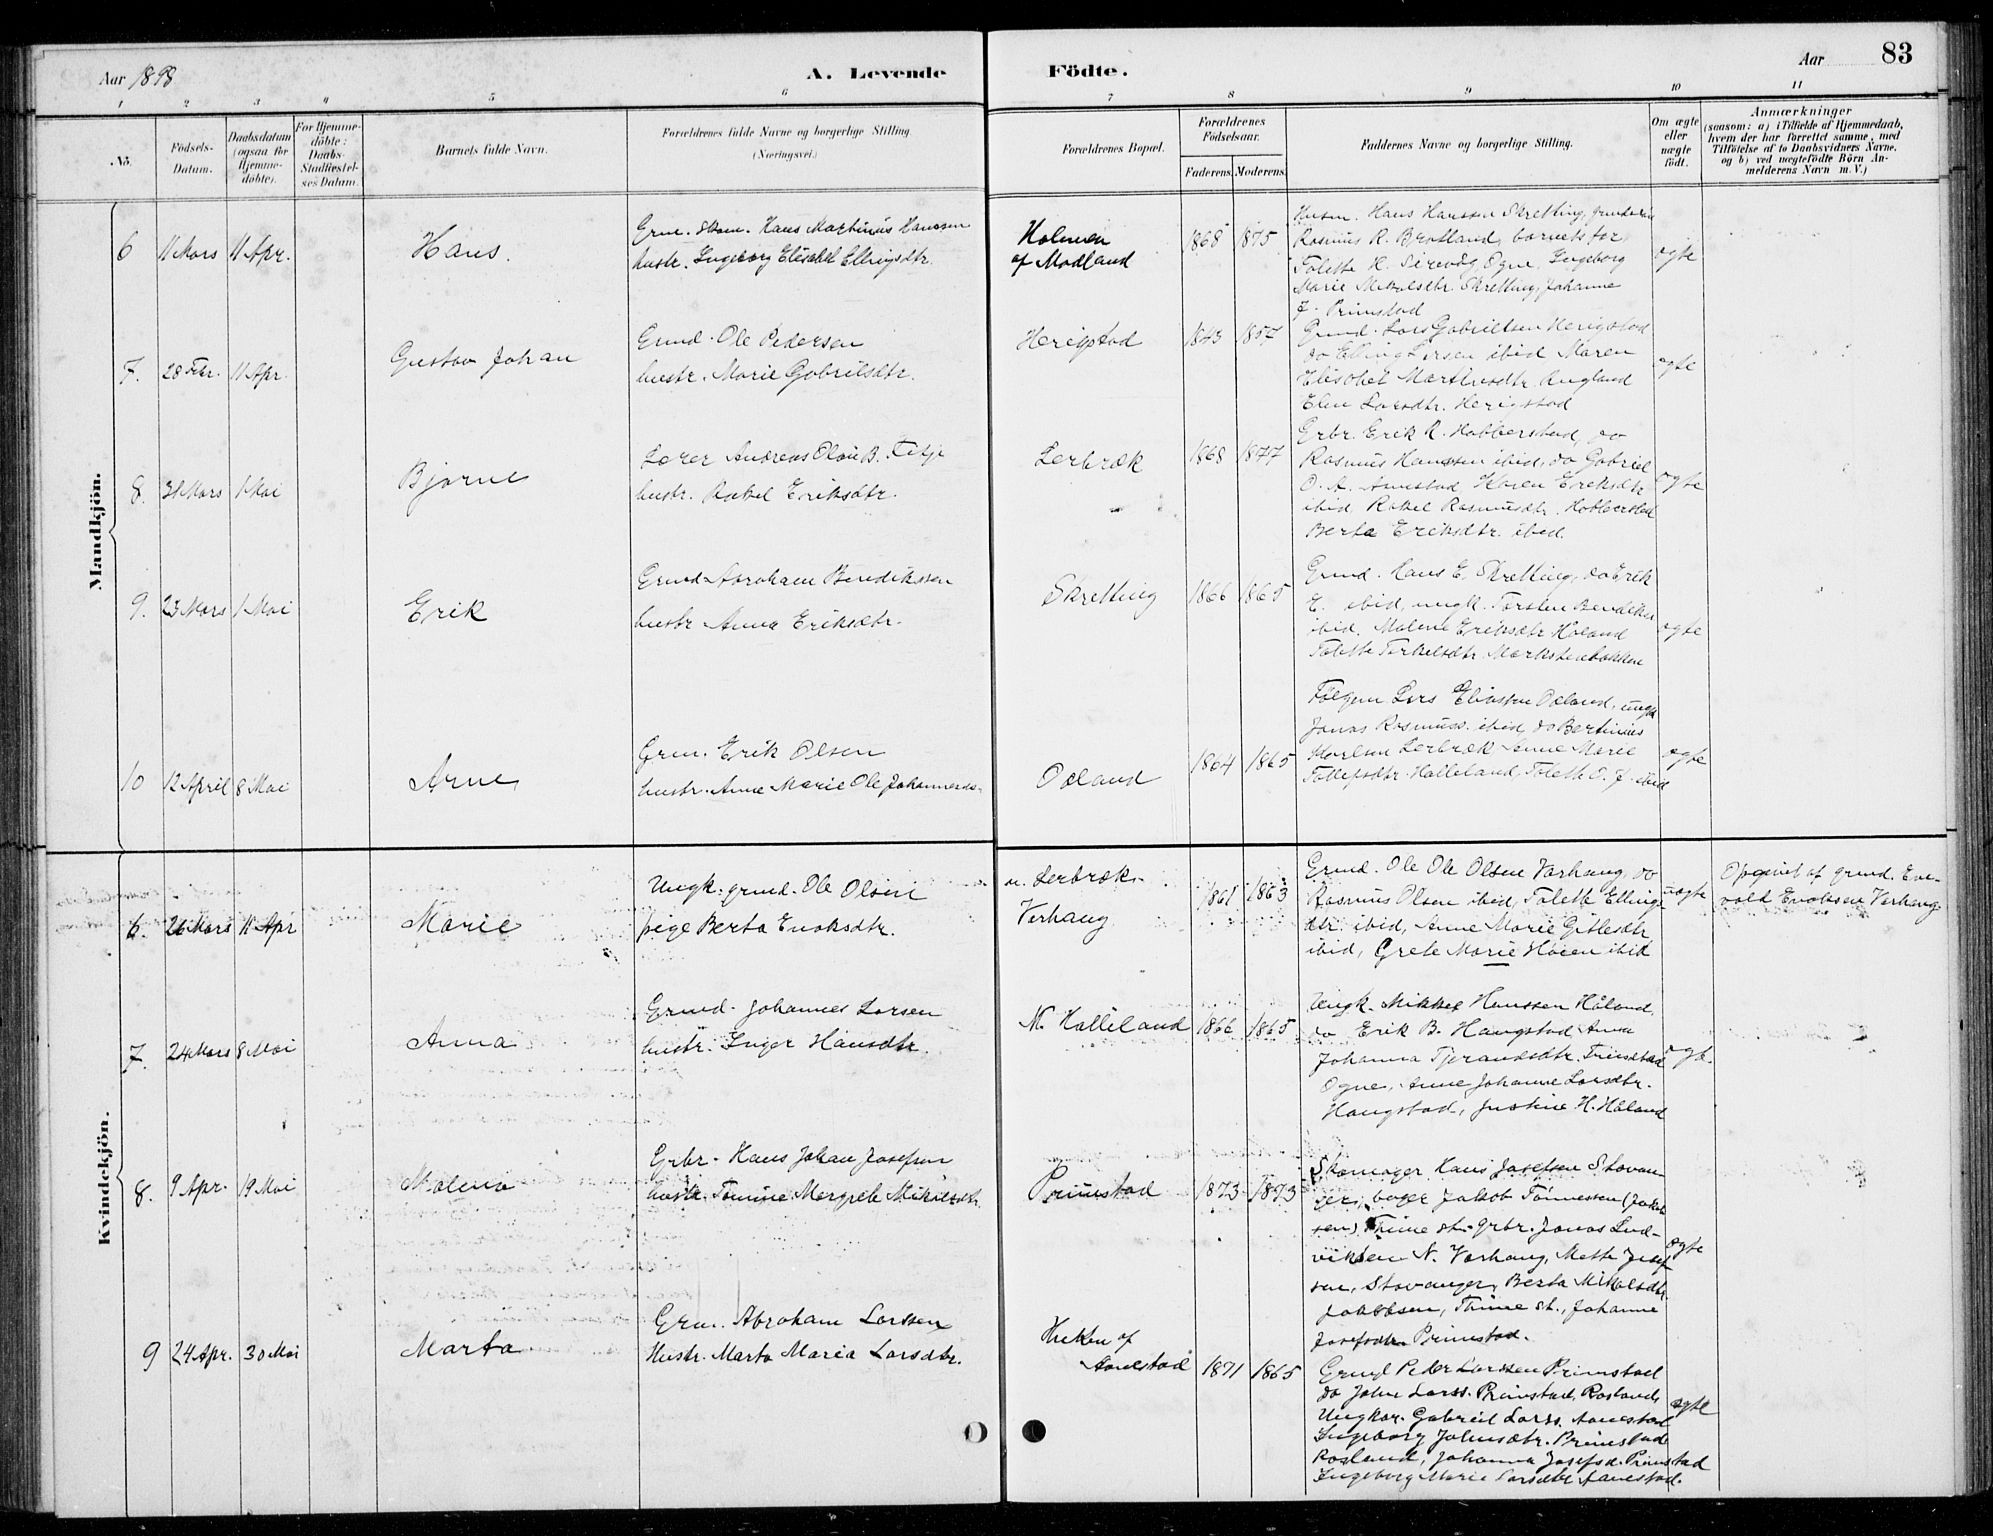 Aar 1898
A. Levende
Födte.
Aar
83
1 2 3 4 5 6 7 8 9 10 11
No.
Födsels-Datum.
Daabsdatum (ogsaa for Hjemme-döbte).
For Hjemme-döbte: Daabs-Stadfæstel-ses Datum.
Barnets fulde Navn.
Forældrenes fulde Navne og borgerlige Stilling.
(Næringsvei.)
Forældrenes Bopæl.
Forældrenes Födselsaar.
Faderens. Moderens.
Faddernes Navne og borgerlige Stilling.
Om ægte eller uægte födt.
Anmærkninger
(saasom: a) i Tilfælde af Hjemmedaab,
hvem der har forrettet samme, med
Tilföielse af to Daabsvidners Navne.
og b) ved uægtefödte Börn An-
melderens Navn m.V.)
Mandkjön.
6 11 Mars 11 Apr. Hans.
Grm. Skom. Hans Martinius Hanssen
hustr. Ingeborg Elisabet Ellingsdtr.
Holmen
af Modland
1868 1875
Husm. Hans Hanssen Skretting,
Rasmus R. Brotland, barnets far,
Tolette H. Sirevåg, Ogne, Ingeborg
Marie Mikalsdtr. Skretting, Johanne
J. Primstad
ægte
7. 28 Febr. 11 Apr. Gustav Johan
Grmd. Ole Pedersen
hustr. Marie Gabrielsdtr.
Herigstad
1843 1857
Grmd. Lars Gabrielsen Herigstad
do Elling Larsen ibid Maren
Elisabet Martinsdtr. Augland
Elen Larsdtr. Herigstad
ægte
8. 31 Mars 1 Mai Bjarne
Lærer Andreas Olaus B. Titje
hustr. Rakel Eriksdtr.
Lerbræk
1868 1877
Grbr. Erik R. Hobberstad, do
Rasmus Hanssen ibid, do Gabriel
O. A. Aanestad Karen Eriksdtr
ibid Rakel Rasmusdtr. Hobberstad
Berta Eriksdtr. ibid.
ægte
9. 23 Mars 1 Mai Erik
Grmd Abraham Bendikssen
hustr Anna Eriksdtr.
Skretting
1866 1865
Grmd. Hans E. Skretting, do Erik
E. ibid, ungk. Torsten Bendiks
ibid. Malene Eriksdtr Håland
Tolette Torkelsdtr. Markstenbakken
ægte
10 12 April 8 Mai Arne
Grm. Erik Olsen
hustr. Anne Marie Ole Johannesds.
Odland
1864 1865
Følgem Lars Eliassen Odland, ungk
Jonas Rasmuss. ibid, do Bertinius
Karlsen Lerbræk Anne Marie
Tollefsdtr. Halleland, Tolette O. J. ibid
ægte
Kvindekjön.
6. 26 Mars 11 Apr Marie
Ungk. grmd. Ole Olsen
pige Berta Enoksdtr.
n. Lerbræk
Varhaug
1861 1863
Grmd. Ole Ole Olsen Varhaug, do
Rasmus Olsen ibid, Tolette Ellings-
dtr. ibid, Anne Marie Gitlesdtr
ibid, Grete Marie Høien ibid
uægte
Opgivet af grmd. Ene-
vold Enoksen Varhaug
7. 24 Mars 8 Mai Anna
Grmd. Johannes Larsen
hustr. Inger Hansdtr.
N. Halleland
1866 1865
Ungk. Mikkel Hanssen Håland,
do Erik B. Haugstad, Anna
Johanna Tjerandsdtr.
Ogne, Anne Johanne Larsdtr.
Haugstad, Justine H. Håland
ægte.
8. 9 Apr. 19 Mai Malena
Grbr. Hans Johan Josefsen
hustr. Tomine Margrete Mikkelsdtr.
Primstad
1873 1873
Skomager Hans Josefsen Stavan-
ger, bager Jakob Tønnessen (Jakob-
sen) Thime st. grbr. Jonas Lud-
viksen N. Varhaug, Mette Josef-
sen, Stavanger, Berta Mikalsdtr.
Jakobsen, Thime st., Johanne
Josefsdtr Primstad.
ægte
9 24 Apr. 30 Mai Marta
Grm. Abraham Larssen
Hustr. Marta Maria Larsdtr.
af
Aanestad
1871 1865
Grmd Peder Larssen Primstad
do John Larss. Primstad, Rosland,
Ungkar. Gabriel Larss. Aanestad
Ingeborg Johnsdtr. Primstad
Rosland, Johanna Josefsd. Primstad
Ingeborg Marie Larsdtr Aanestad.
ægte